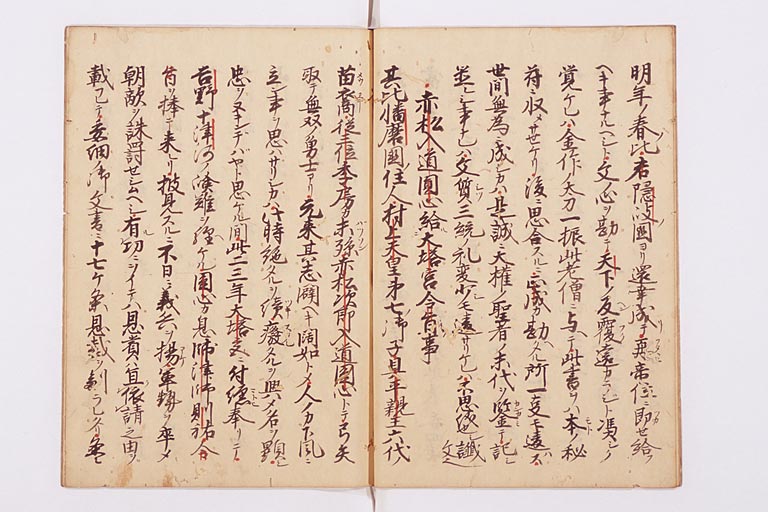 明年ノ春比君隠岐國ヨリ還幸成テ再帝位ニ即セ給フ
ヘキ事ナルヘシト文ノ心ヲ勘テ天下ノ反覆遠カラシト憑シク
覚ケレハ金作ノ太刀一振此老僧ニ与テ此書ヲハ本ノ秘
府ニ収メサセケリ後ニ思合スルニ正成カ勘ヘタル所一事モ違ハス
世間無為ニ成シカハ是誠ニ大權ノ聖者ノ末代ヲ鑒テ記シ
並シ事ナレ共文質三統ノ礼変少モ違サリケルハ不思儀ノ讖文也
赤松入道圓心給大塔宮令旨事
其比播磨國住人村上天皇第七御子具平親王六代
苗裔従三位季房カ末孫赤松次郎入道圓心トテ弓矢
取テ無双ノ勇士アリ元来其志闊如トシテ人ノ下風ニ
立ン事ヲ思ハサリシカハ此時絶タルヲ續廢タルヲ興メ名ヲ顕シ
忠ヲヌキンテハヤト思ケル間此二三年大塔宮ニ付纒奉リテ
吉野十津河ノ険難ヲ經ケル圓心カ息師律師則祐令
旨ヲ捧テ来レリ披見スルニ不日ニ義兵ヲ揚軍勢ヲ率メ
朝敵ヲ誅罸セシムヘシ有功ニヲイテハ恩賞宜依請之由ヲ
載ラレテ委細御文書ニ十七ケ条恩裁ヲ